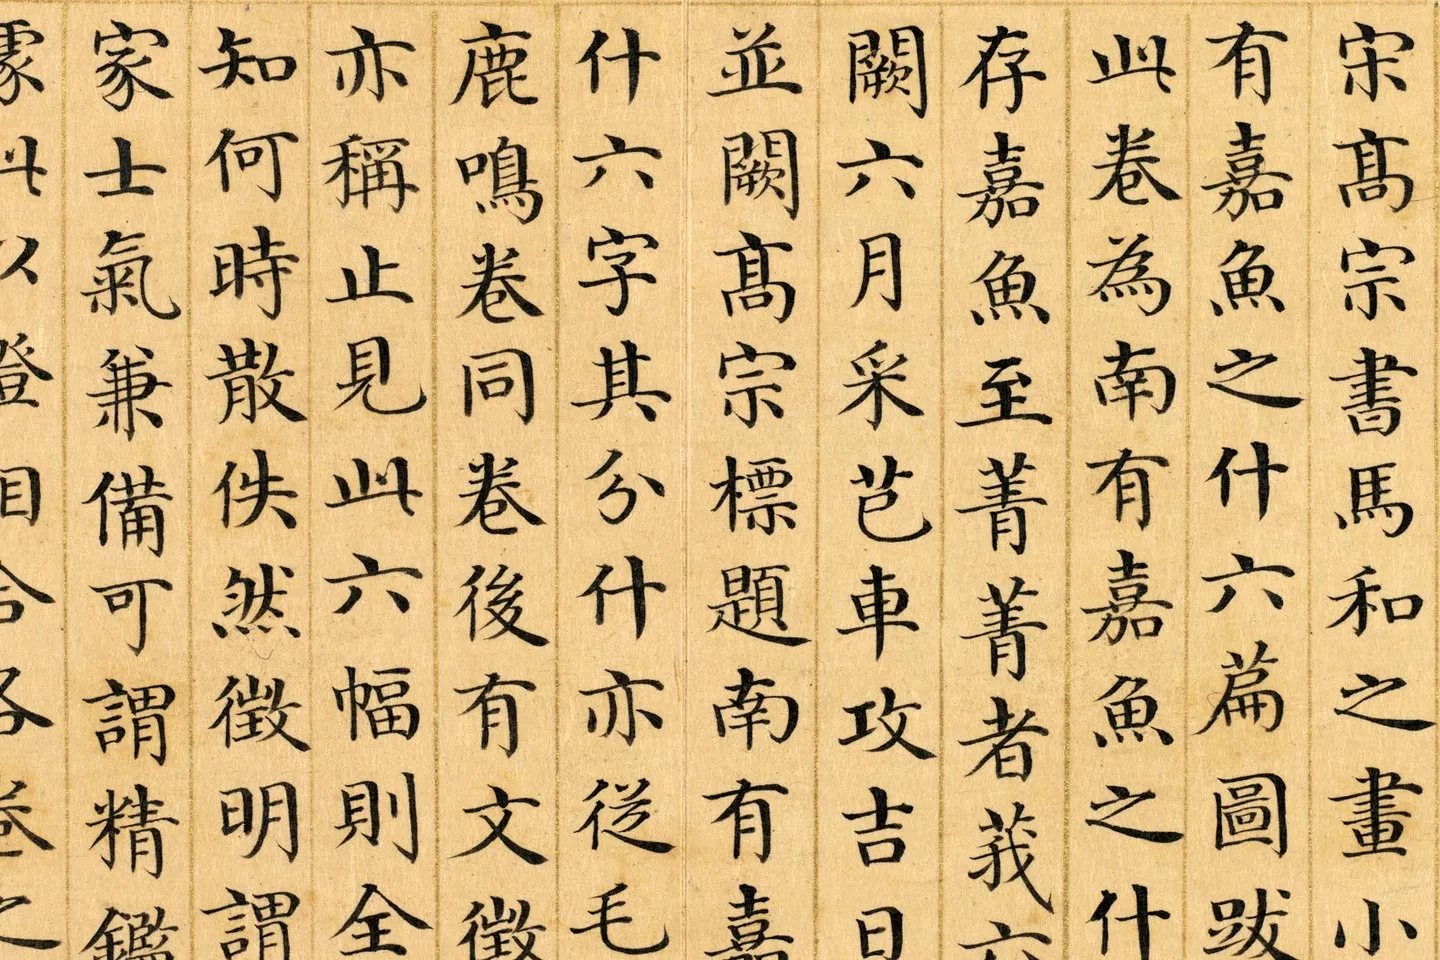 宋髙宗書馬和之畫小
有嘉魚之什六篇圖跋
此卷為南有嘉魚之什
存嘉魚至菁菁者莪六
闕六月采芑車攻吉日
並闕髙宗標題南有嘉
什六字其分什亦從毛
鹿鳴卷同卷後有文徵
亦稱止見此六幅則全
知何時散佚然徵明謂
家士氣兼備可謂精鑑
以證相合各卷之